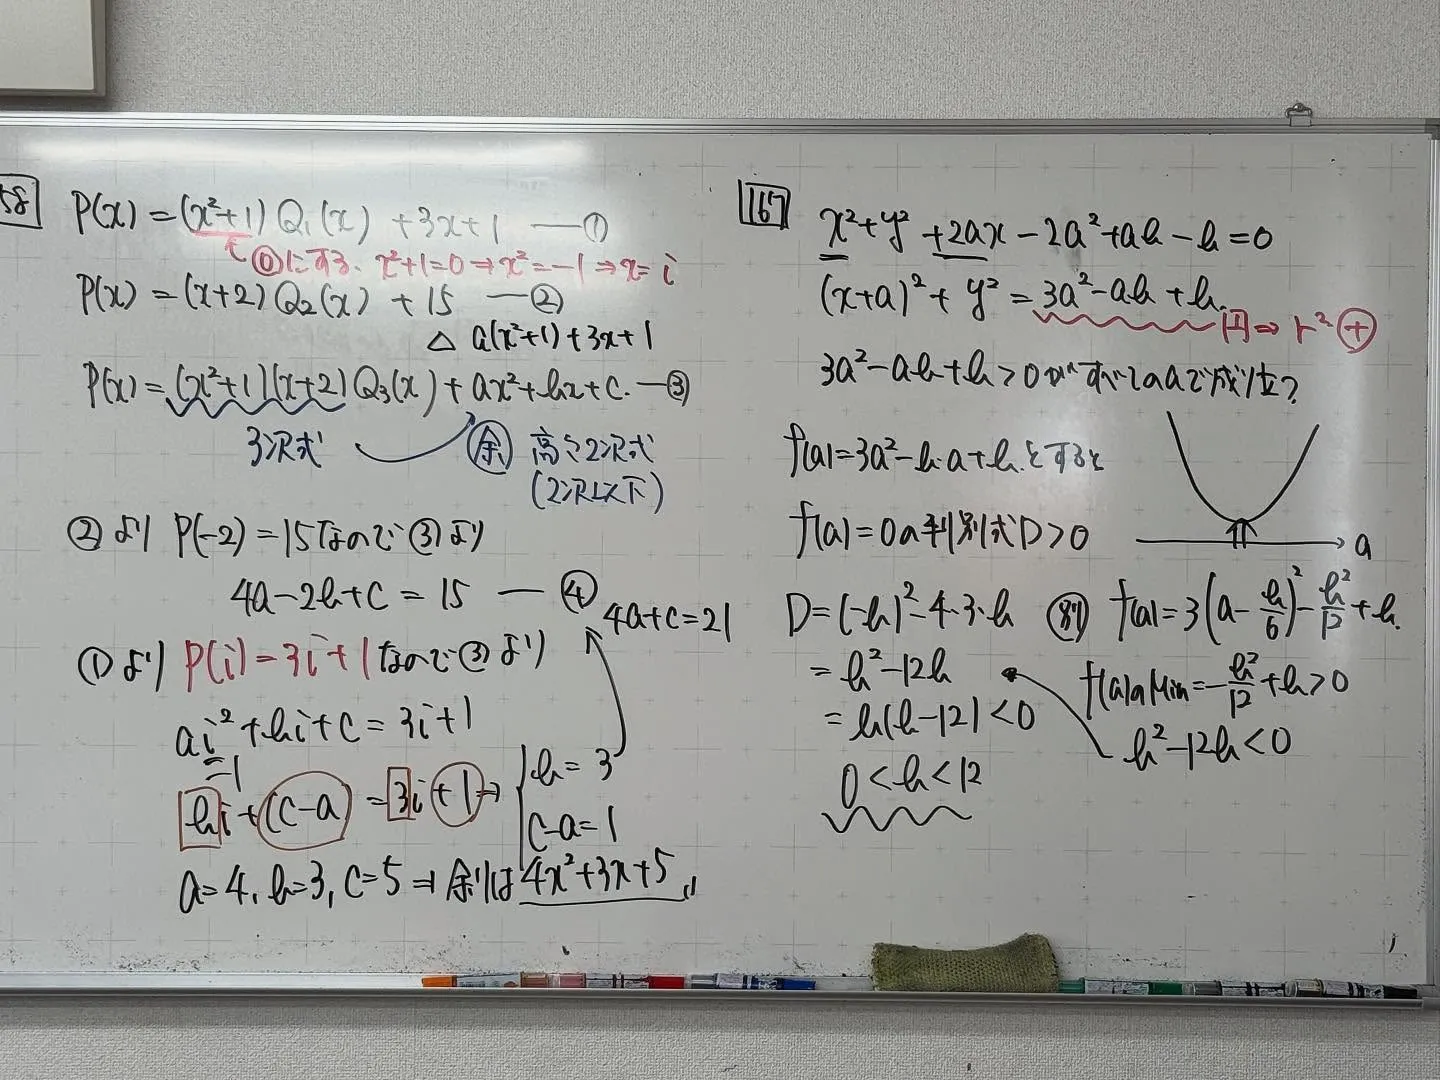 58 P(x) = (x²+1) Q₁(x) + 3x+1 —①
⓪にする. x²+1=0 ⇒ x²=-1 ⇒ x= i
P(x) = (x+2) Q₂(x) + 15 —②
△ a(x²+1)+3x+1
P(x) = (x²+1)(x+2)Q₃(x) + ax²+bx+c. —③
3次式 余 高々2次式
(2次以下)
②より P(-2) = 15なので③より
4a-2b+c = 15 — ④
4a+c=21
①より P(i)=3i+1なので③より
ai²+bi+c = 3i+1
=-1
bi+(c-a) = 3i+1 →
b=3
c-a=1
a=4, b=3, c=5 ⇒ 余りは 4x²+3x+5 〃
167 x²+y²+2ax-2a²+ab-b=0
(x+a)²+y²=3a²-ab+b.
円⇒ r² ⊕
3a²-ab+b>0がすべてのaで成り立?
f(a)=3a²-b·a+b.とすると
f(a)=0の判別式D>0
a
D=(-b)²-4·3·b
= b²-12b
= b(b-12)<0
0<b<12
別 f(a)=3(a-b/6)²-b²/12+b.
f(a)のMin=-b²/12+b>0
b²-12b<0